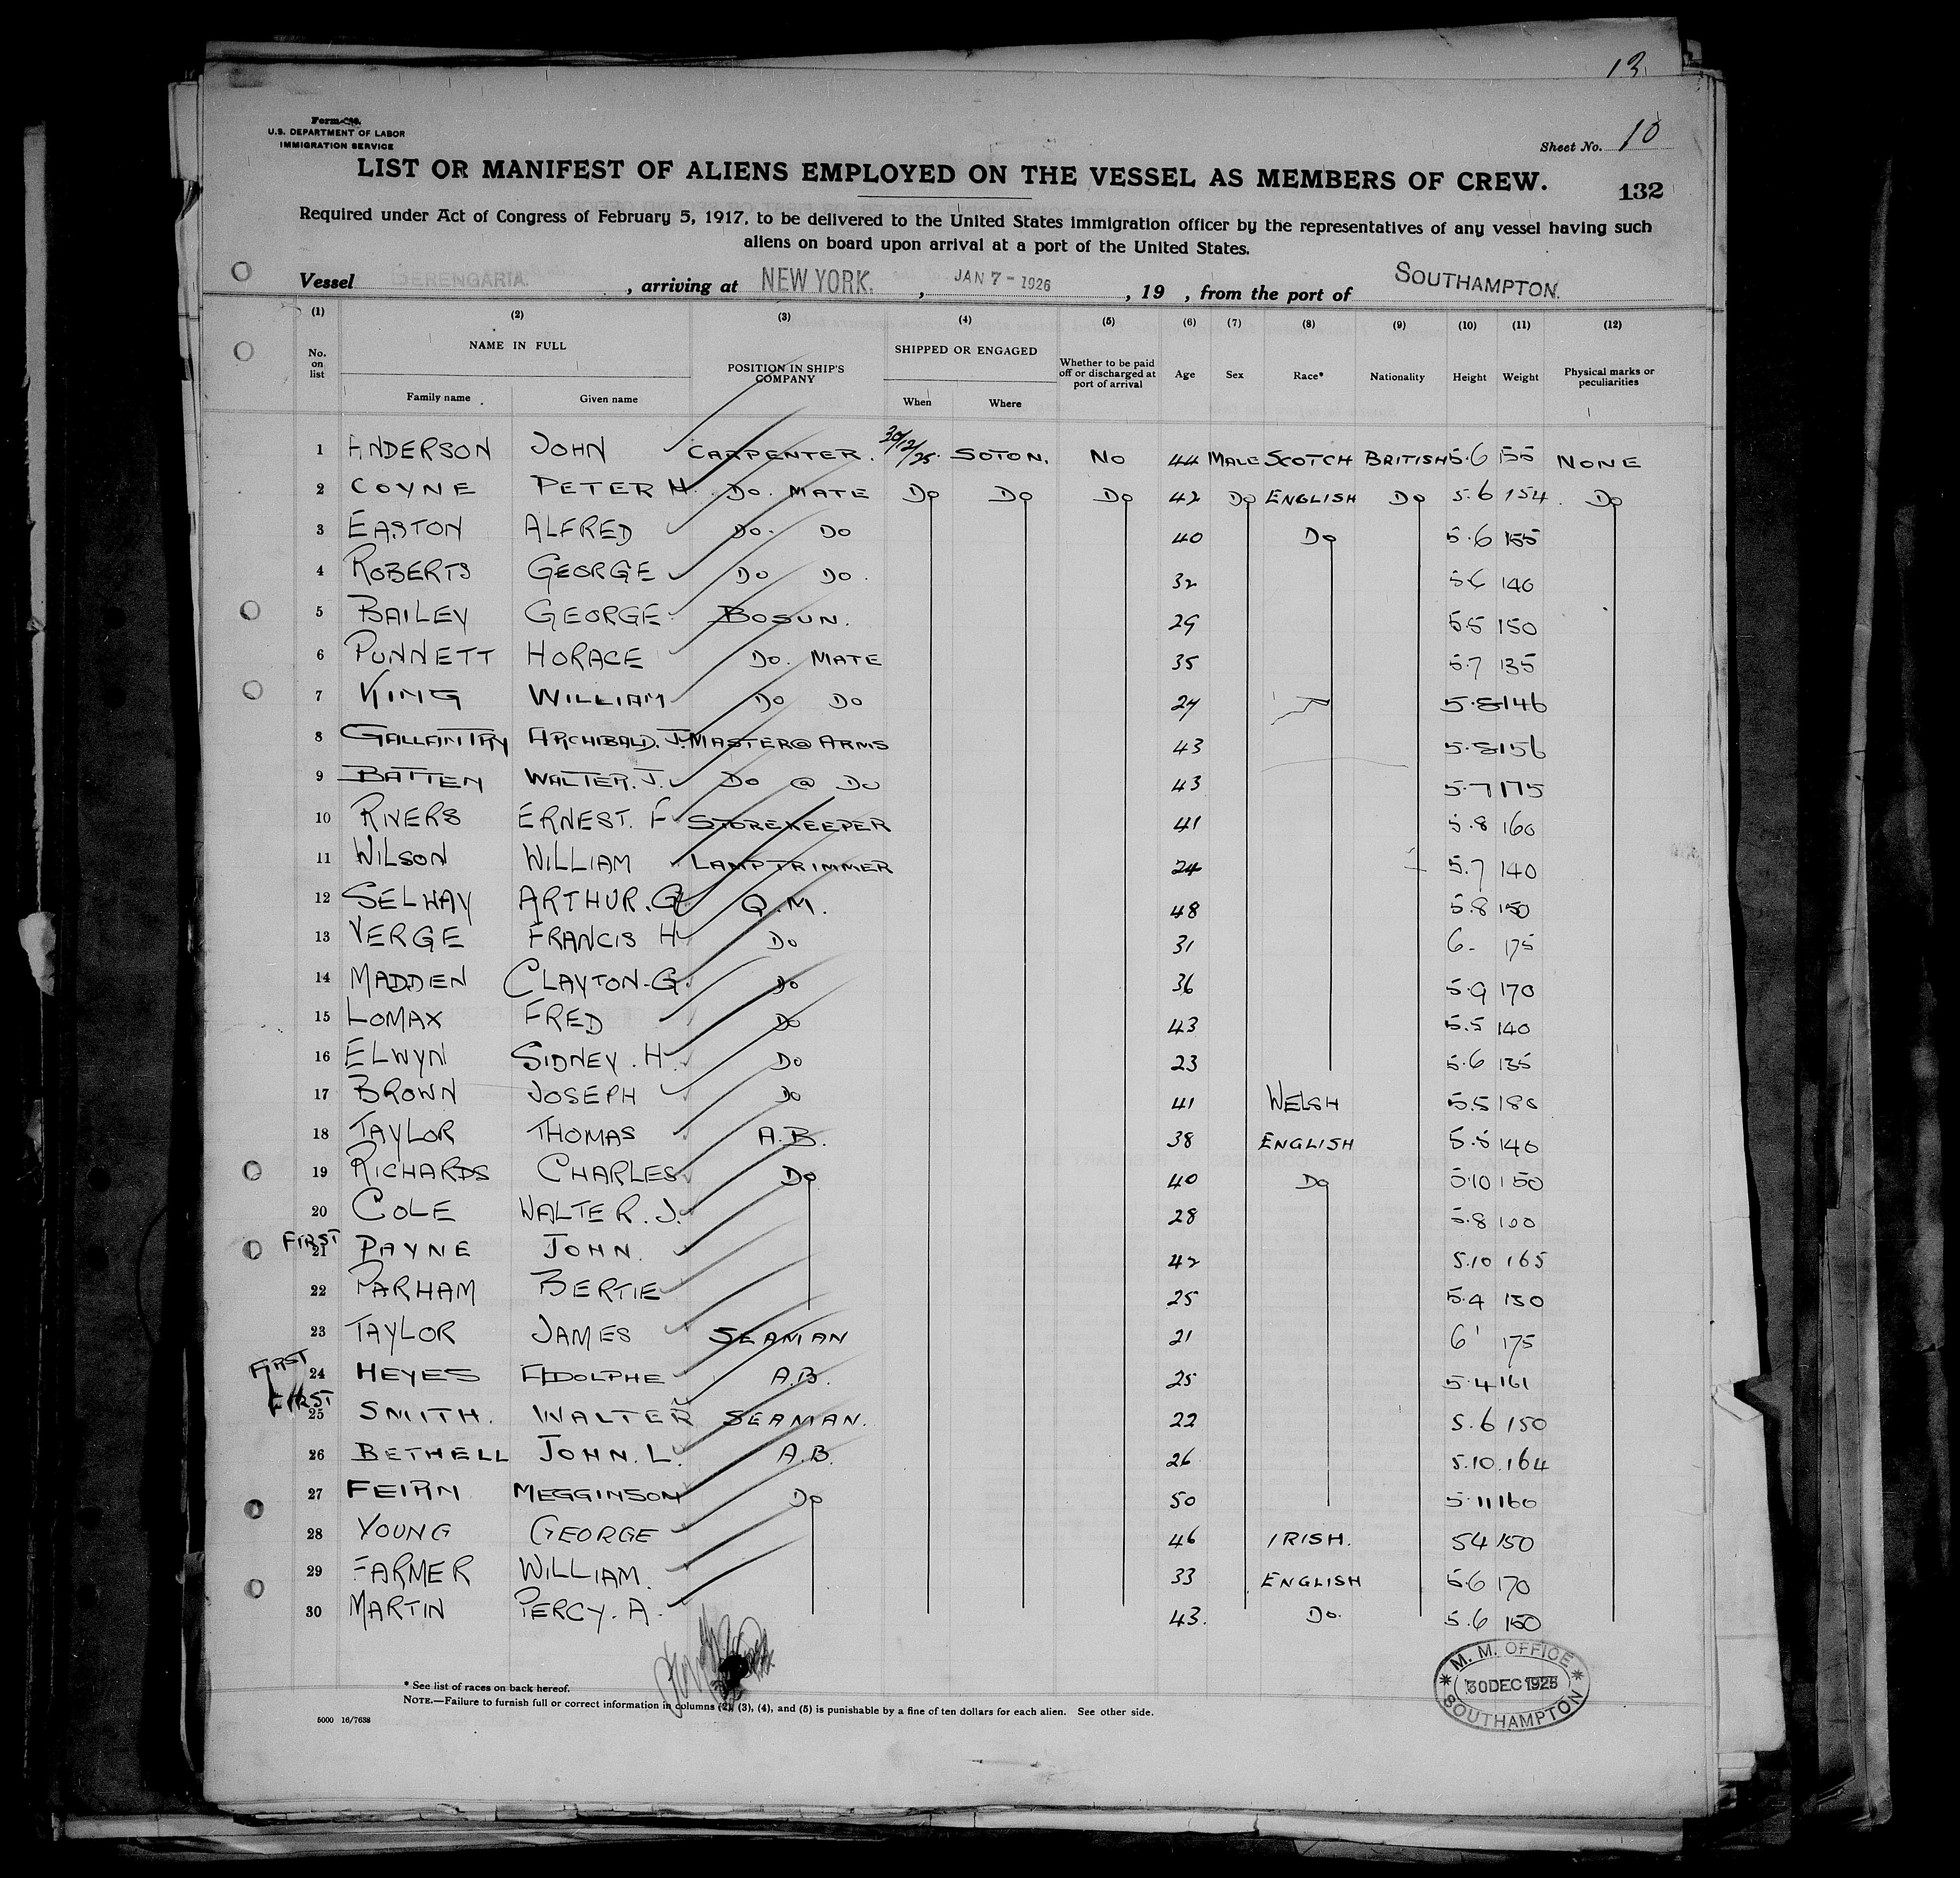 13
Form
U.S. DEPARTMENT OF LABOR
IMMIGRATION SERVICE
Sheet No. 10
LIST OR MANIFEST OF ALIENS EMPLOYED ON THE VESSEL AS MEMBERS OF CREW.
132
Required under Act of Congress of February 5, 1917, to be delivered to the United States immigration officer by the representatives of any vessel having such
aliens on board upon arrival at a port of the United States.
Vessel BERENGARIA , arriving at NEW YORK. , JAN 7 - 1926 , 19 , from the port of SOUTHAMPTON.
(1) (2) (3) (4) (5) (6) (7) (8) (9) (10) (11) (12)
No. on list NAME IN FULL Family name Given name POSITION IN SHIP'S COMPANY SHIPPED OR ENGAGED When Where Whether to be paid off or discharged at port of arrival Age Sex Race* Nationality Height Weight Physical marks or peculiarities
1 ANDERSON JOHN CARPENTER. 30/12/25. SOTON. NO 44 MALE SCOTCH BRITISH 5.6 155 NONE
2 COYNE PETER H. DO. MATE DO DO DO 42 DO ENGLISH DO 5.6 154. DO
3 EASTON ALFRED DO. DO 40 DO 5.6 155
4 ROBERTS GEORGE DO DO. 32 5.6 140
5 BAILEY GEORGE BOSUN. 29 5.5 150
6 PUNNETT HORACE DO. MATE 35 5.7 135
7 KING WILLIAM DO DO 27 5.8 146
8 GALLANTRY ARCHIBALD. J. MASTER @ ARMS 43 5.8 156
9 BATTEN WALTER. J. DO @ DO 43 5.7 175
10 RIVERS ERNEST. F STOREKEEPER 41 5.8 160
11 WILSON WILLIAM LAMPTRIMMER 24 5.7 140
12 SELWAY ARTHUR. G Q.M. 48 5.8 150
13 VERGE FRANCIS H DO 31 6- 175
14 MADDEN CLAYTON-G. DO 36 5.9 170
15 LOMAX FRED DO 43 5.5 140
16 ELWYN SIDNEY. H DO 23 5.6 135
17 BROWN JOSEPH DO 41 WELSH 5.5 180
18 TAYLOR THOMAS A.B. 38 ENGLISH 5.5 140
19 RICHARDS CHARLES DO 40 DO 5.10 150
20 COLE WALTER. J. 28 5.8
FIRST 21 PAYNE JOHN. 42 5.10 165
22 PARHAM BERTIE 25 5.4 150
23 TAYLOR JAMES SEAMAN 21 6' 175
FIRST 24 HEYES ADOLPHE A.B. 25 5.4 161
FIRST 25 SMITH. WALTER SEAMAN. 22 5.6 150
26 BETHELL JOHN. L. A.B. 26 5.10. 164
27 FEIRN MEGGINSON DO 50 5.11 160
28 YOUNG GEORGE 46 IRISH. 54 150
29 FARMER WILLIAM. 33 ENGLISH 5.6 170
30 MARTIN PERCY. A. 43. DO. 5.6 150
* See list of races on back hereof.
NOTE.—Failure to furnish full or correct information in columns (2), (3), (4), and (5) is punishable by a fine of ten dollars for each alien. See other side.
5000 16/7638
* M. M. OFFICE *
30 DEC 1925
SOUTHAMPTON